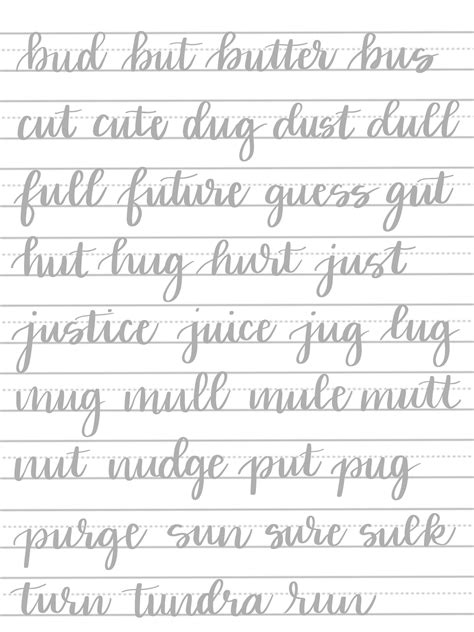 bud but butter bus
cut cute dug dust dull
full future guess gut
hut hug hurt just
justice juice jug lug
mug mull mule mutt
nut nudge put pug
purge sun sure sulk
turn tundra run